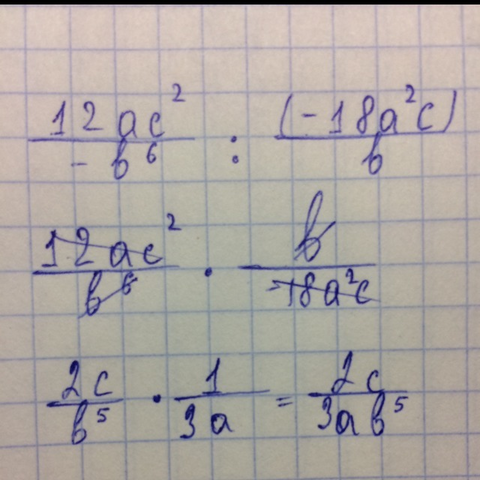 12ac² / -b⁶ : (-18a²c) / b
12ac² / b⁶ · b / -18a²c
2c / b⁵ · 1 / 3a = 2c / 3ab⁵